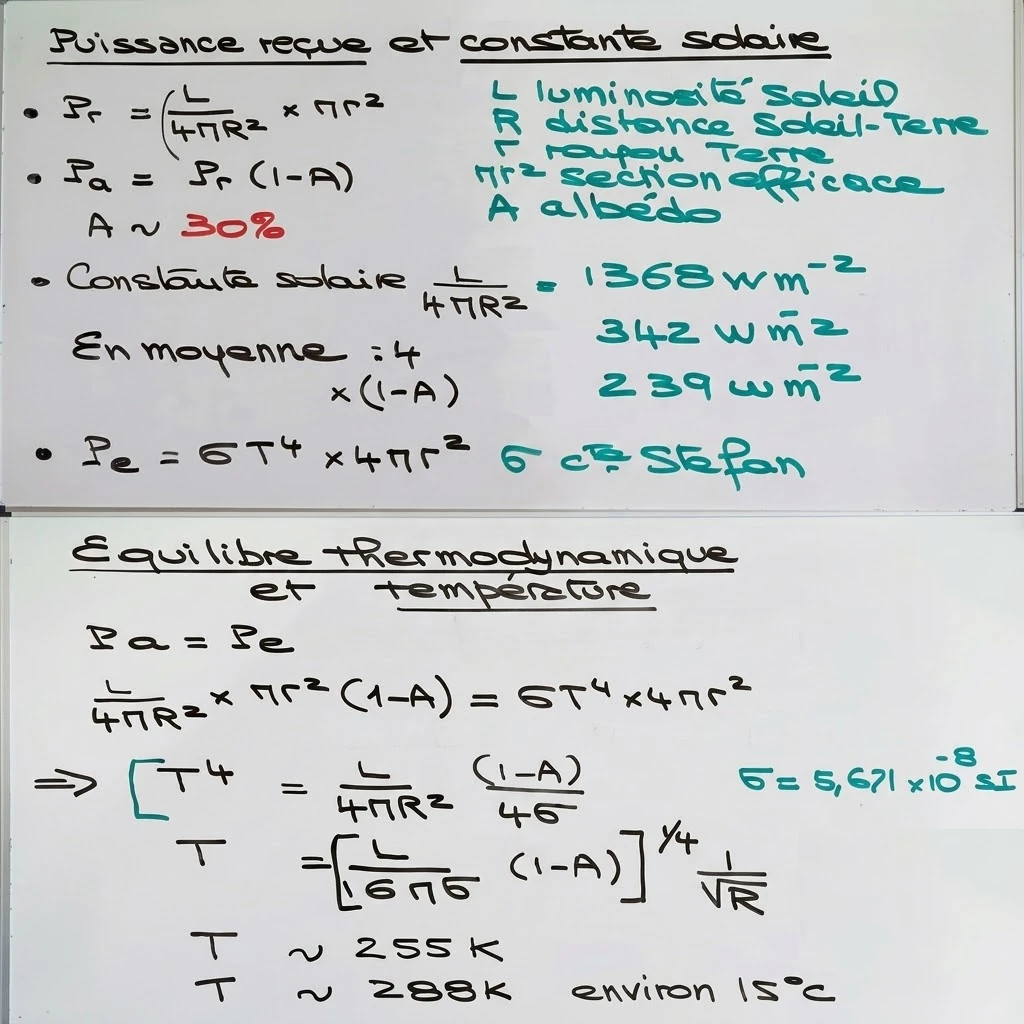 Puissance reçue et constante solaire
• Pr = (L/4πR² × πr²
L luminosité Soleil
R distance Soleil-Terre
r rayon Terre
πr² section efficace
A albédo
• Pa = Pr (1-A)
A ~ 30%
• Constante solaire L/4πR² = 1368 W m⁻²
En moyenne :4 342 W m⁻²
×(1-A) 239 W m⁻²
• Pe = σT⁴ × 4πr² σ cte Stefan
Equilibre thermodynamique
et température
Pa = Pe
L/4πR² × πr² (1-A) = σT⁴ × 4πr²
⇒ [T⁴ = L/4πR² (1-A)/4σ σ = 5,671 × 10⁻⁸ SI
T = [L/16πσ (1-A)]^1/4 1/√R
T ~ 255 K
T ~ 288 K environ 15°C